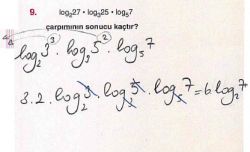 9. log₂27 · log₃25 · log₅7
çarpımının sonucu kaçtır?
log₂3³ · log₃5² · log₅7
3.2.log₂3 · log₃5 · log₅7 = 6.log₂7